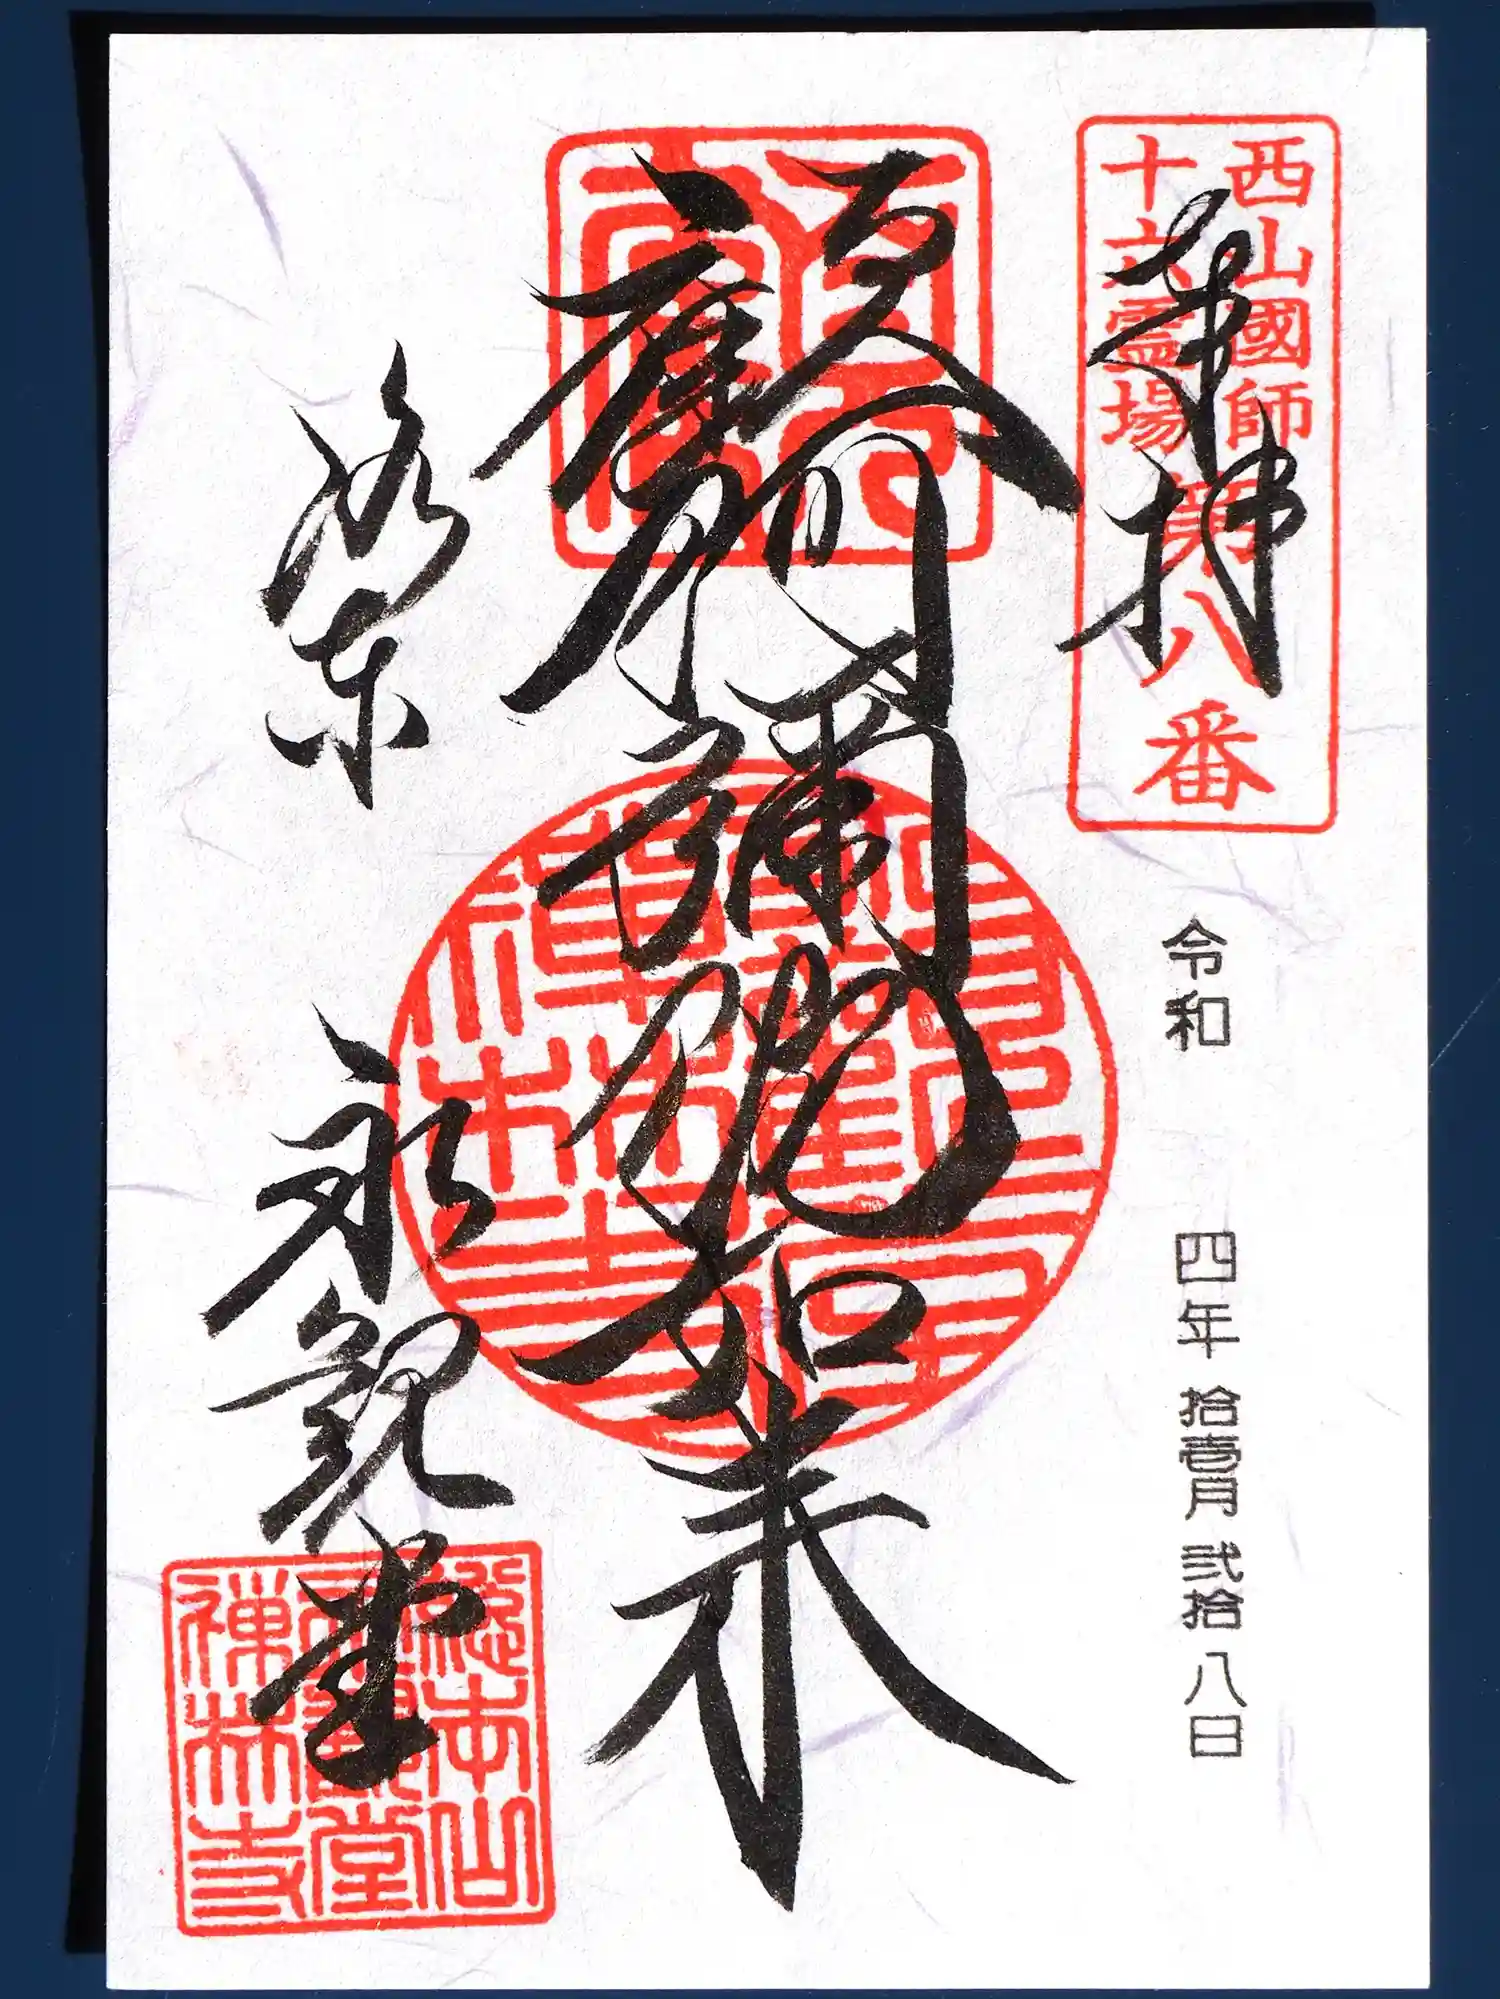 西山國師
十六霊場
第八番
奉拝
令和 四年 拾壹月 弐拾八日
顧阿彌陀如来
洛東 永観堂
總本山
永觀堂
禅林寺